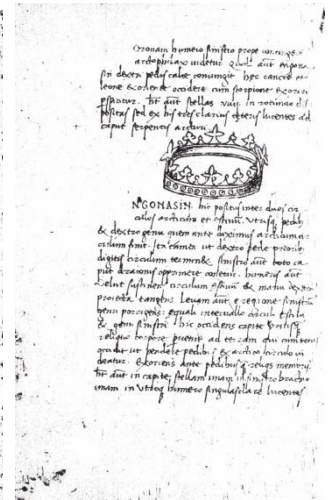 oronam humero sinistro prope
arctophilax videtur
sin dextri pedis calce coniungit hec cancro et
leone exoriente occidere cum scorpione exoriri
Spectatur. ht aut stellas viiij in rotundo dis
positas sed ex his tres clarius ceteris lucentes ad
caput serpentis arcturi
NGONASIN. hic positus inter duos cir
culos
& dextro genu quem ante diximus articum cir
culum finit. sed tamen ut dextro pede prioribus
digitis circulum terminet sinistro aut toto ca
put draconis opprimere conetur. humeris aut
velut sustinens circulum estivum & manu dextra
proiecta tangens levam aut e regione sinistri
genu porrigens. equali intervallo
& genu sinistri. hic occidens capite
reliquo corpore pvenit ad terram qui cum totus
occidit ut pendere pedibus ex arctico circulo vi
deatur. Exoriens ante pedibus q reliquis
ht aut in capite stellam unam in sinistro brachio
unam in utroq humero singulas clare lucentes